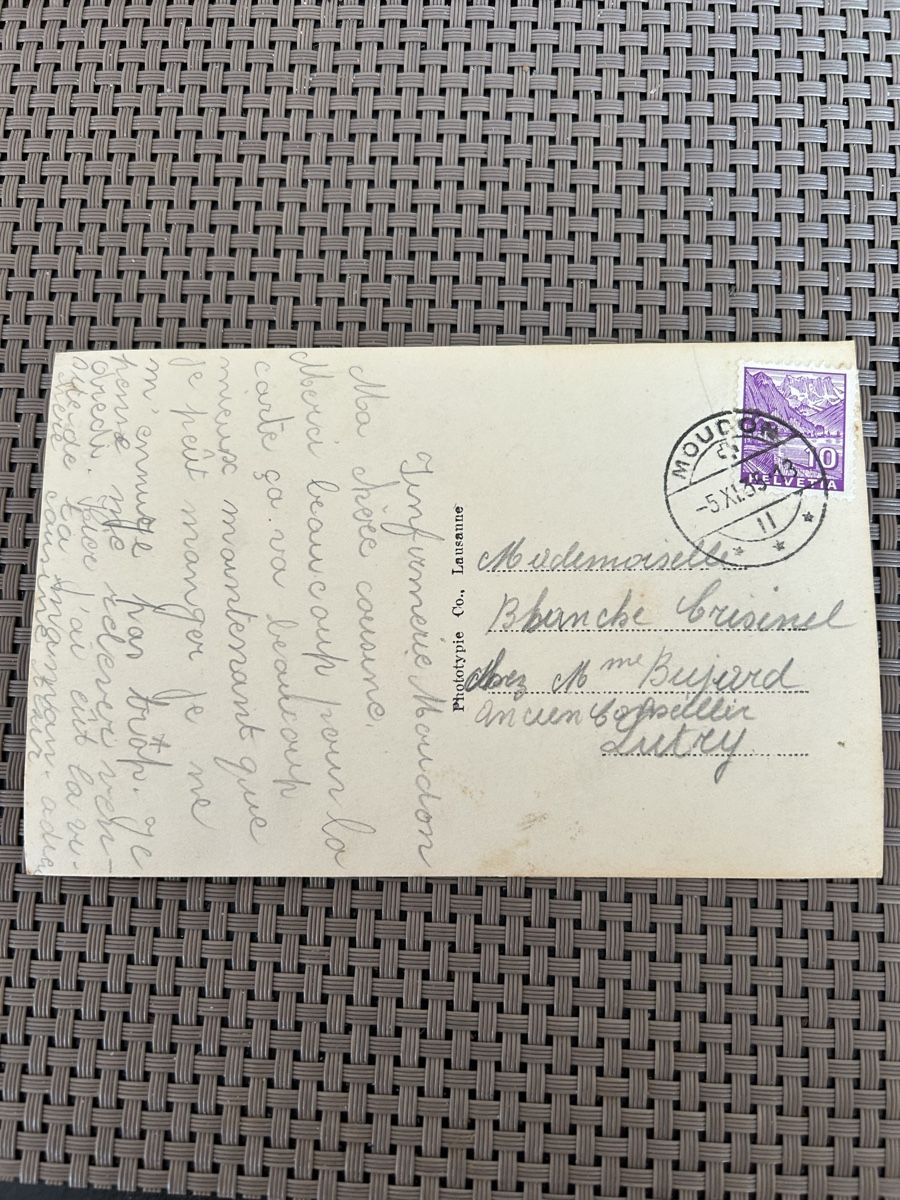 Infirmerie Moudon
Ma chère cousine,
Merci beaucoup pour la
carte ça va beaucoup
mieux maintenant que
je peût manger je ne
m'ennuye pas trop. Je
pense me relever ven-
dredi. Hier j'ai eût la vi-
site de ta maman. adieu
chère cousine
Phototypie Co., Lausanne
MOUDON
-5.XI.35-13
II
10
HELVETIA
Mademoiselle
Blanche Crisinel
chez Mme Bujard
ancien Conseiller
Lutry.